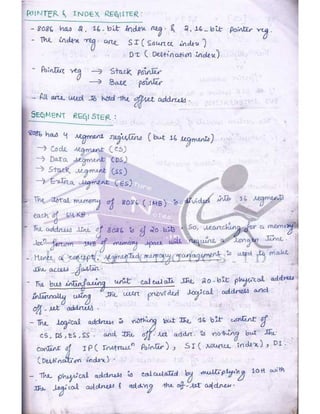 POINTER & INDEX REGISTER :
- 8086 has 2, 16-bit index reg. & 2, 16-bit pointer reg.
- The index reg are SI (Source index)
DI (Destination index)
- Pointer reg → Stack pointer
→ Base pointer
- All are used to hold the offset address.
SEGMENT REGISTER :
8086 has 4 segment registers (but 16 segments)
→ Code segment (CS)
→ Data segment (DS)
→ Stack segment (SS)
→ Extra segment (ES)
- The total memory of 8086 (1MB) is divided into 16 segments
each of 64KB
- The address line of 8086 is of 20 bits. So, searching for a memory
locn from 1MB of memory space will require a longer time.
- Hence, a concept, segmented memory management is used to make
the access faster.
- The bus interfacing unit calculate the 20-bit physical address
internally using the user provided logical address and
off-set address.
- The logical address is nothing but the 16 bit content of
CS, DS, ES, SS. and the off set addr. is nothing but the
content of IP (Instrucn Pointer), SI (source index), DI
(Destination index).
- The physical address is calculated by multiplying 10H with
the logical address & adding the off-set address.